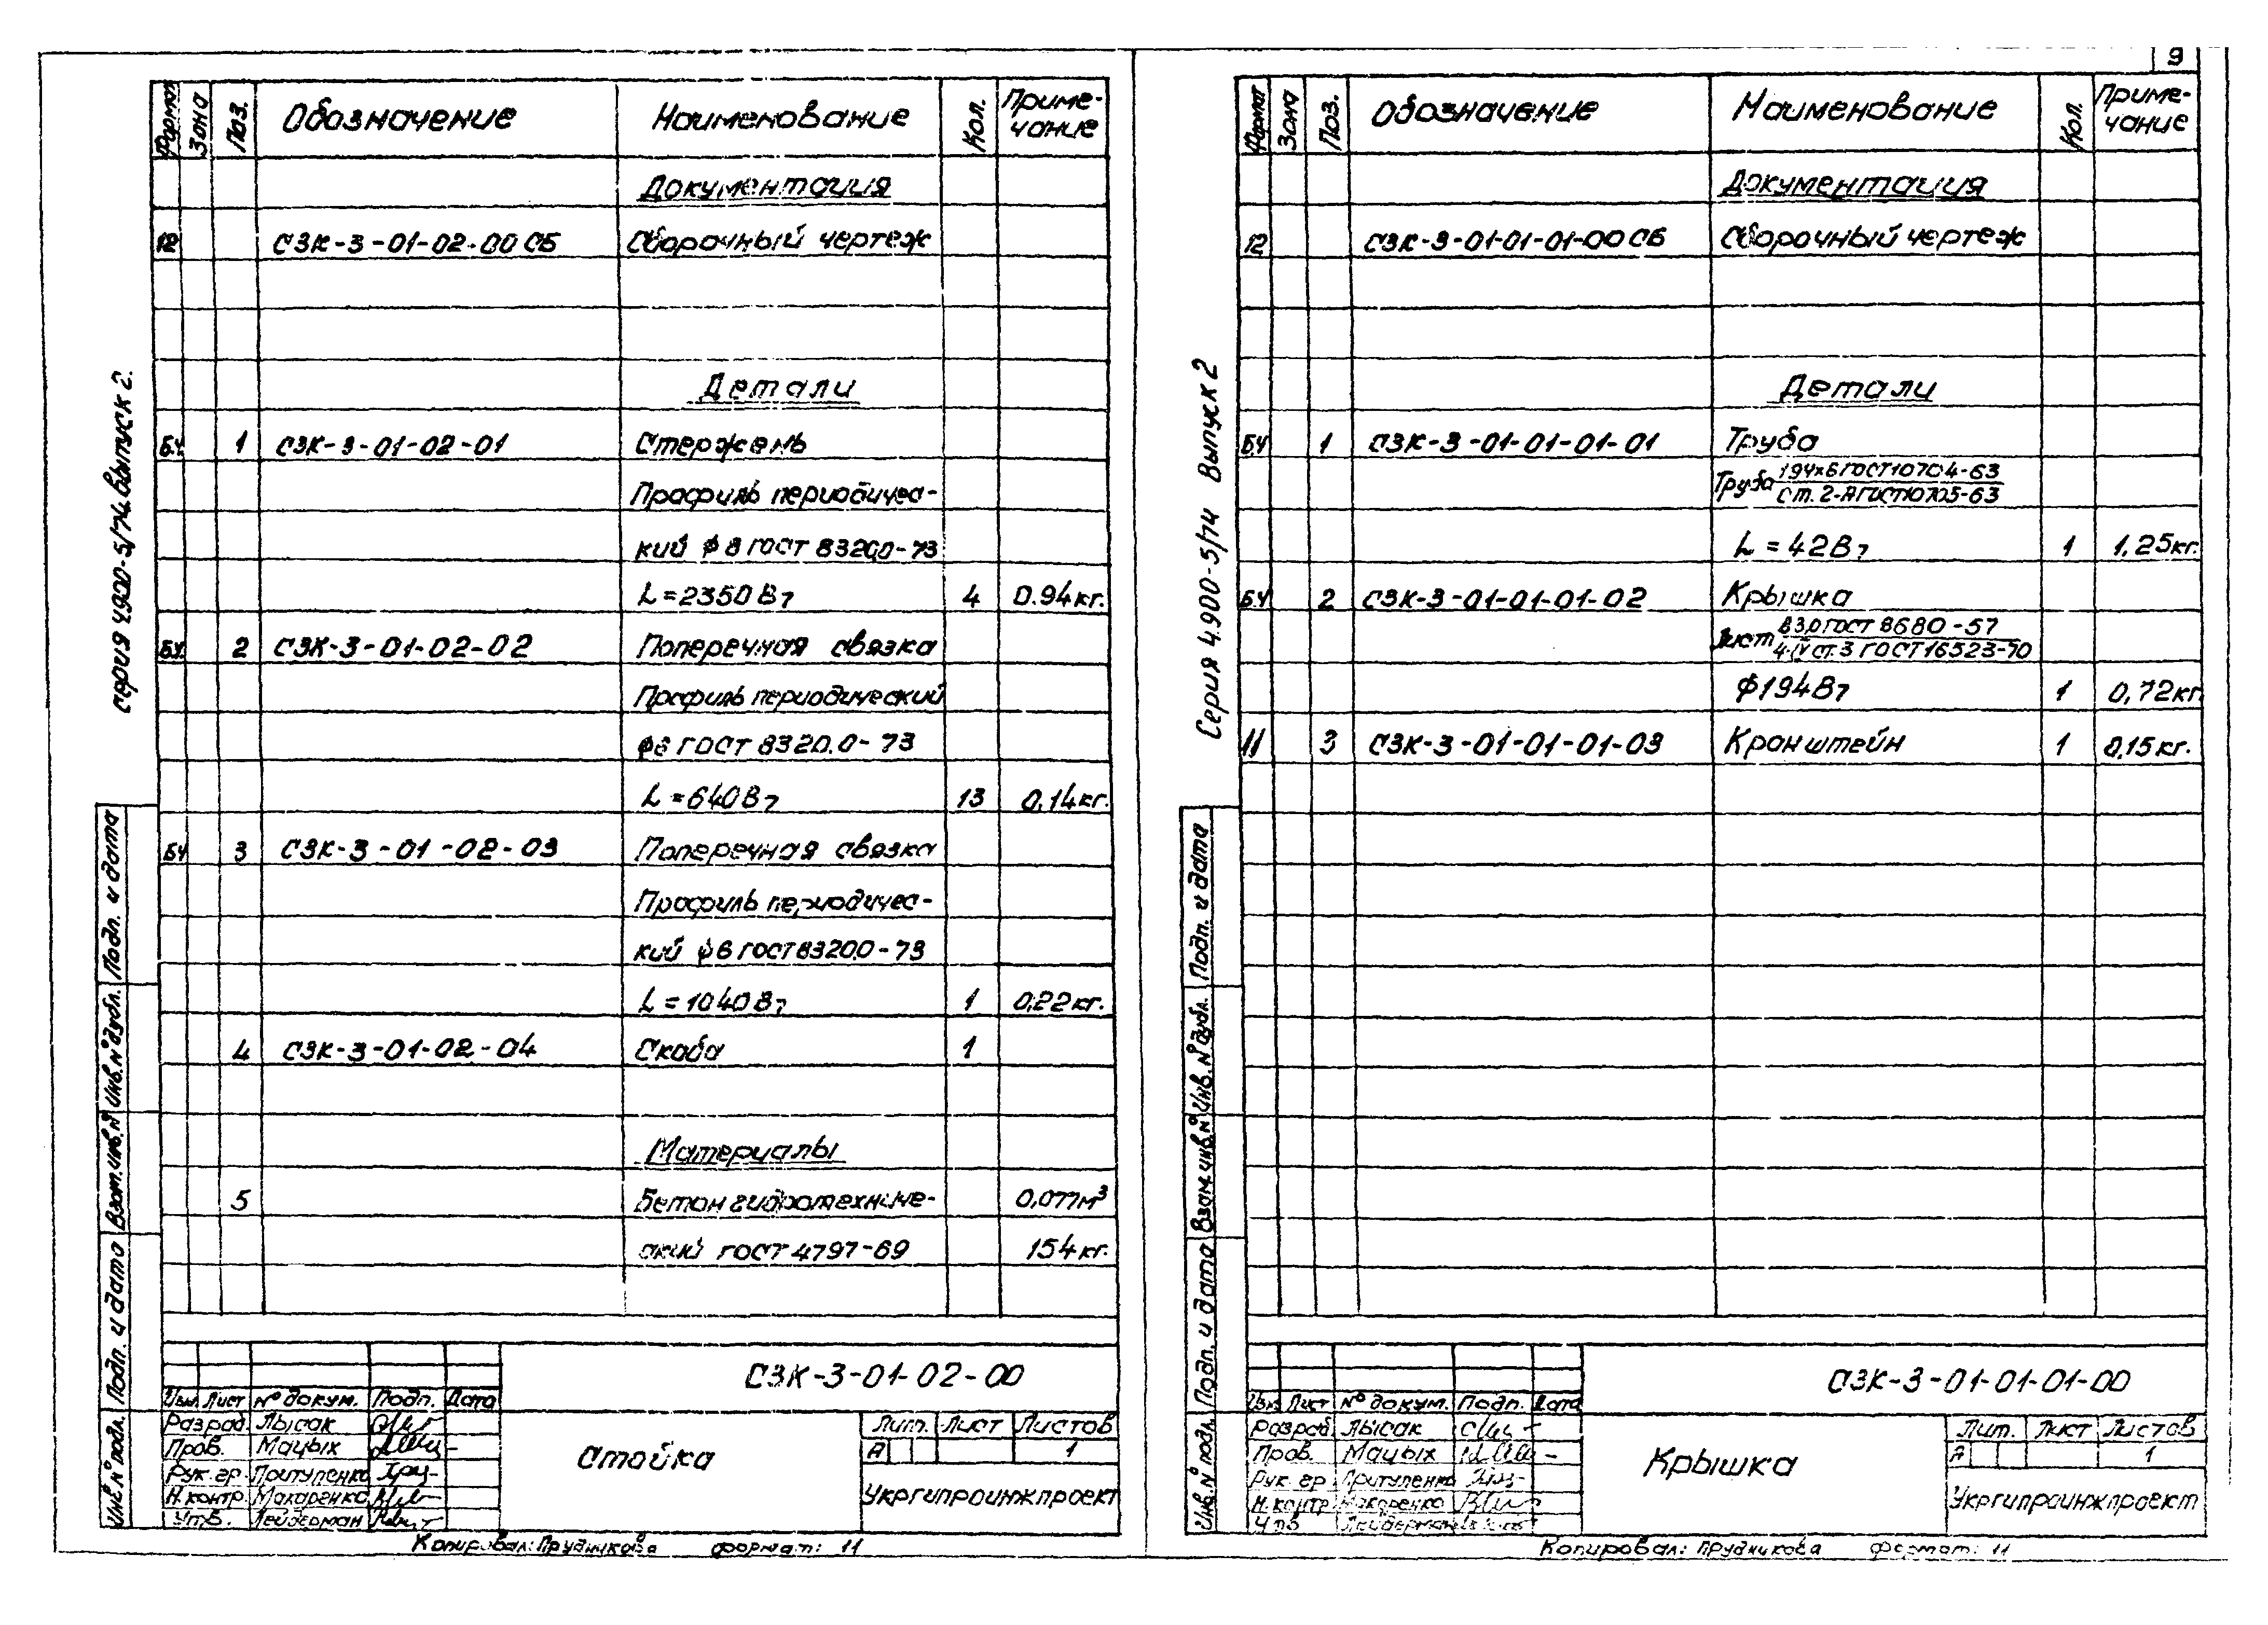 9
Серия 4.900-5/74 Выпуск 2.
Формат Зона Поз. Обозначение Наименование Кол. Приме-
чание
Документация
12 СЗК-3-01-02-00 СБ Сборочный чертеж
Детали
БЧ 1 СЗК-3-01-02-01 Стержень
Профиль периодичес-
кий ф 8 ГОСТ 8320.0-73
L=2350В7 4 0.94кг.
БЧ 2 СЗК-3-01-02-02 Поперечная связка
Профиль периодический
ф6 ГОСТ 8320.0-73
L=640В7 13 0,14кг.
БЧ 3 СЗК-3-01-02-03 Поперечная связка
Профиль периодичес-
кий ф6 ГОСТ 8320.0-73
L=1040В7 1 0,22кг.
4 СЗК-3-01-02-04 Скоба 1
Материалы
5 Бетон гидротехниче- 0,077м³
ский ГОСТ 4797-69 154кг.
Инв. № подл. Подп. и дата Взам. инв. № Инв. № дубл. Подп. и дата
СЗК-3-01-02-00
Изм. Лист № докум. Подп. Дата
Разраб. Лысак
Пров. Мацых
Рук. гр. Притупенко
Н. контр. Макаренко
Утв. Лейдерман
Стойка
Лит. Лист Листов
А 1
Укргипроинжпроект
Копировал: Прудникова формат: 11
Серия 4.900-5/74 Выпуск 2
Формат Зона Поз. Обозначение Наименование Кол. Приме-
чание
Документация
12 СЗК-3-01-01-01-00 СБ Сборочный чертеж
Детали
БЧ 1 СЗК-3-01-01-01-01 Труба
Труба 194х6 ГОСТ 10704-63
Ст. 2-А ГОСТ 10705-63
L=42В7 1 1,25кг.
БЧ 2 СЗК-3-01-01-01-02 Крышка
Лист В 3,0 ГОСТ 8680-57
4-IV ст. 3 ГОСТ 16523-70
ф194В7 1 0,72кг
11 3 СЗК-3-01-01-01-03 Кронштейн 1 0,15кг.
Инв. № подл. Подп. и дата Взам. инв. № Инв. № дубл. Подп. и дата
СЗК-3-01-01-01-00
Изм. Лист № докум. Подп. Дата
Разраб. Лысак
Пров. Мацых
Рук. гр. Притупенко
Н. контр. Макаренко
Утв. Лейдерман
Крышка
Лит. Лист Листов
А 1
Укргипроинжпроект
Копировал: Прудникова Формат: 11